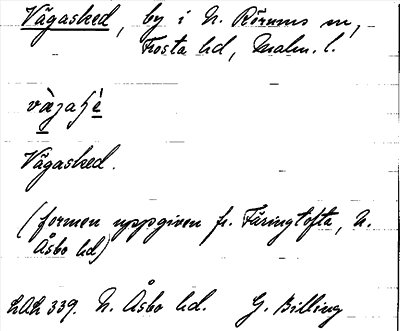 Vägasked, by i N. Rörums sn,
Frosta hd, Malm. l.
vàgasè
Vägasked.
(formen uppgiven fr. Färingtofta, N.
Åsbo hd)
LAL 339. N. Åsbo hd. G. Billing